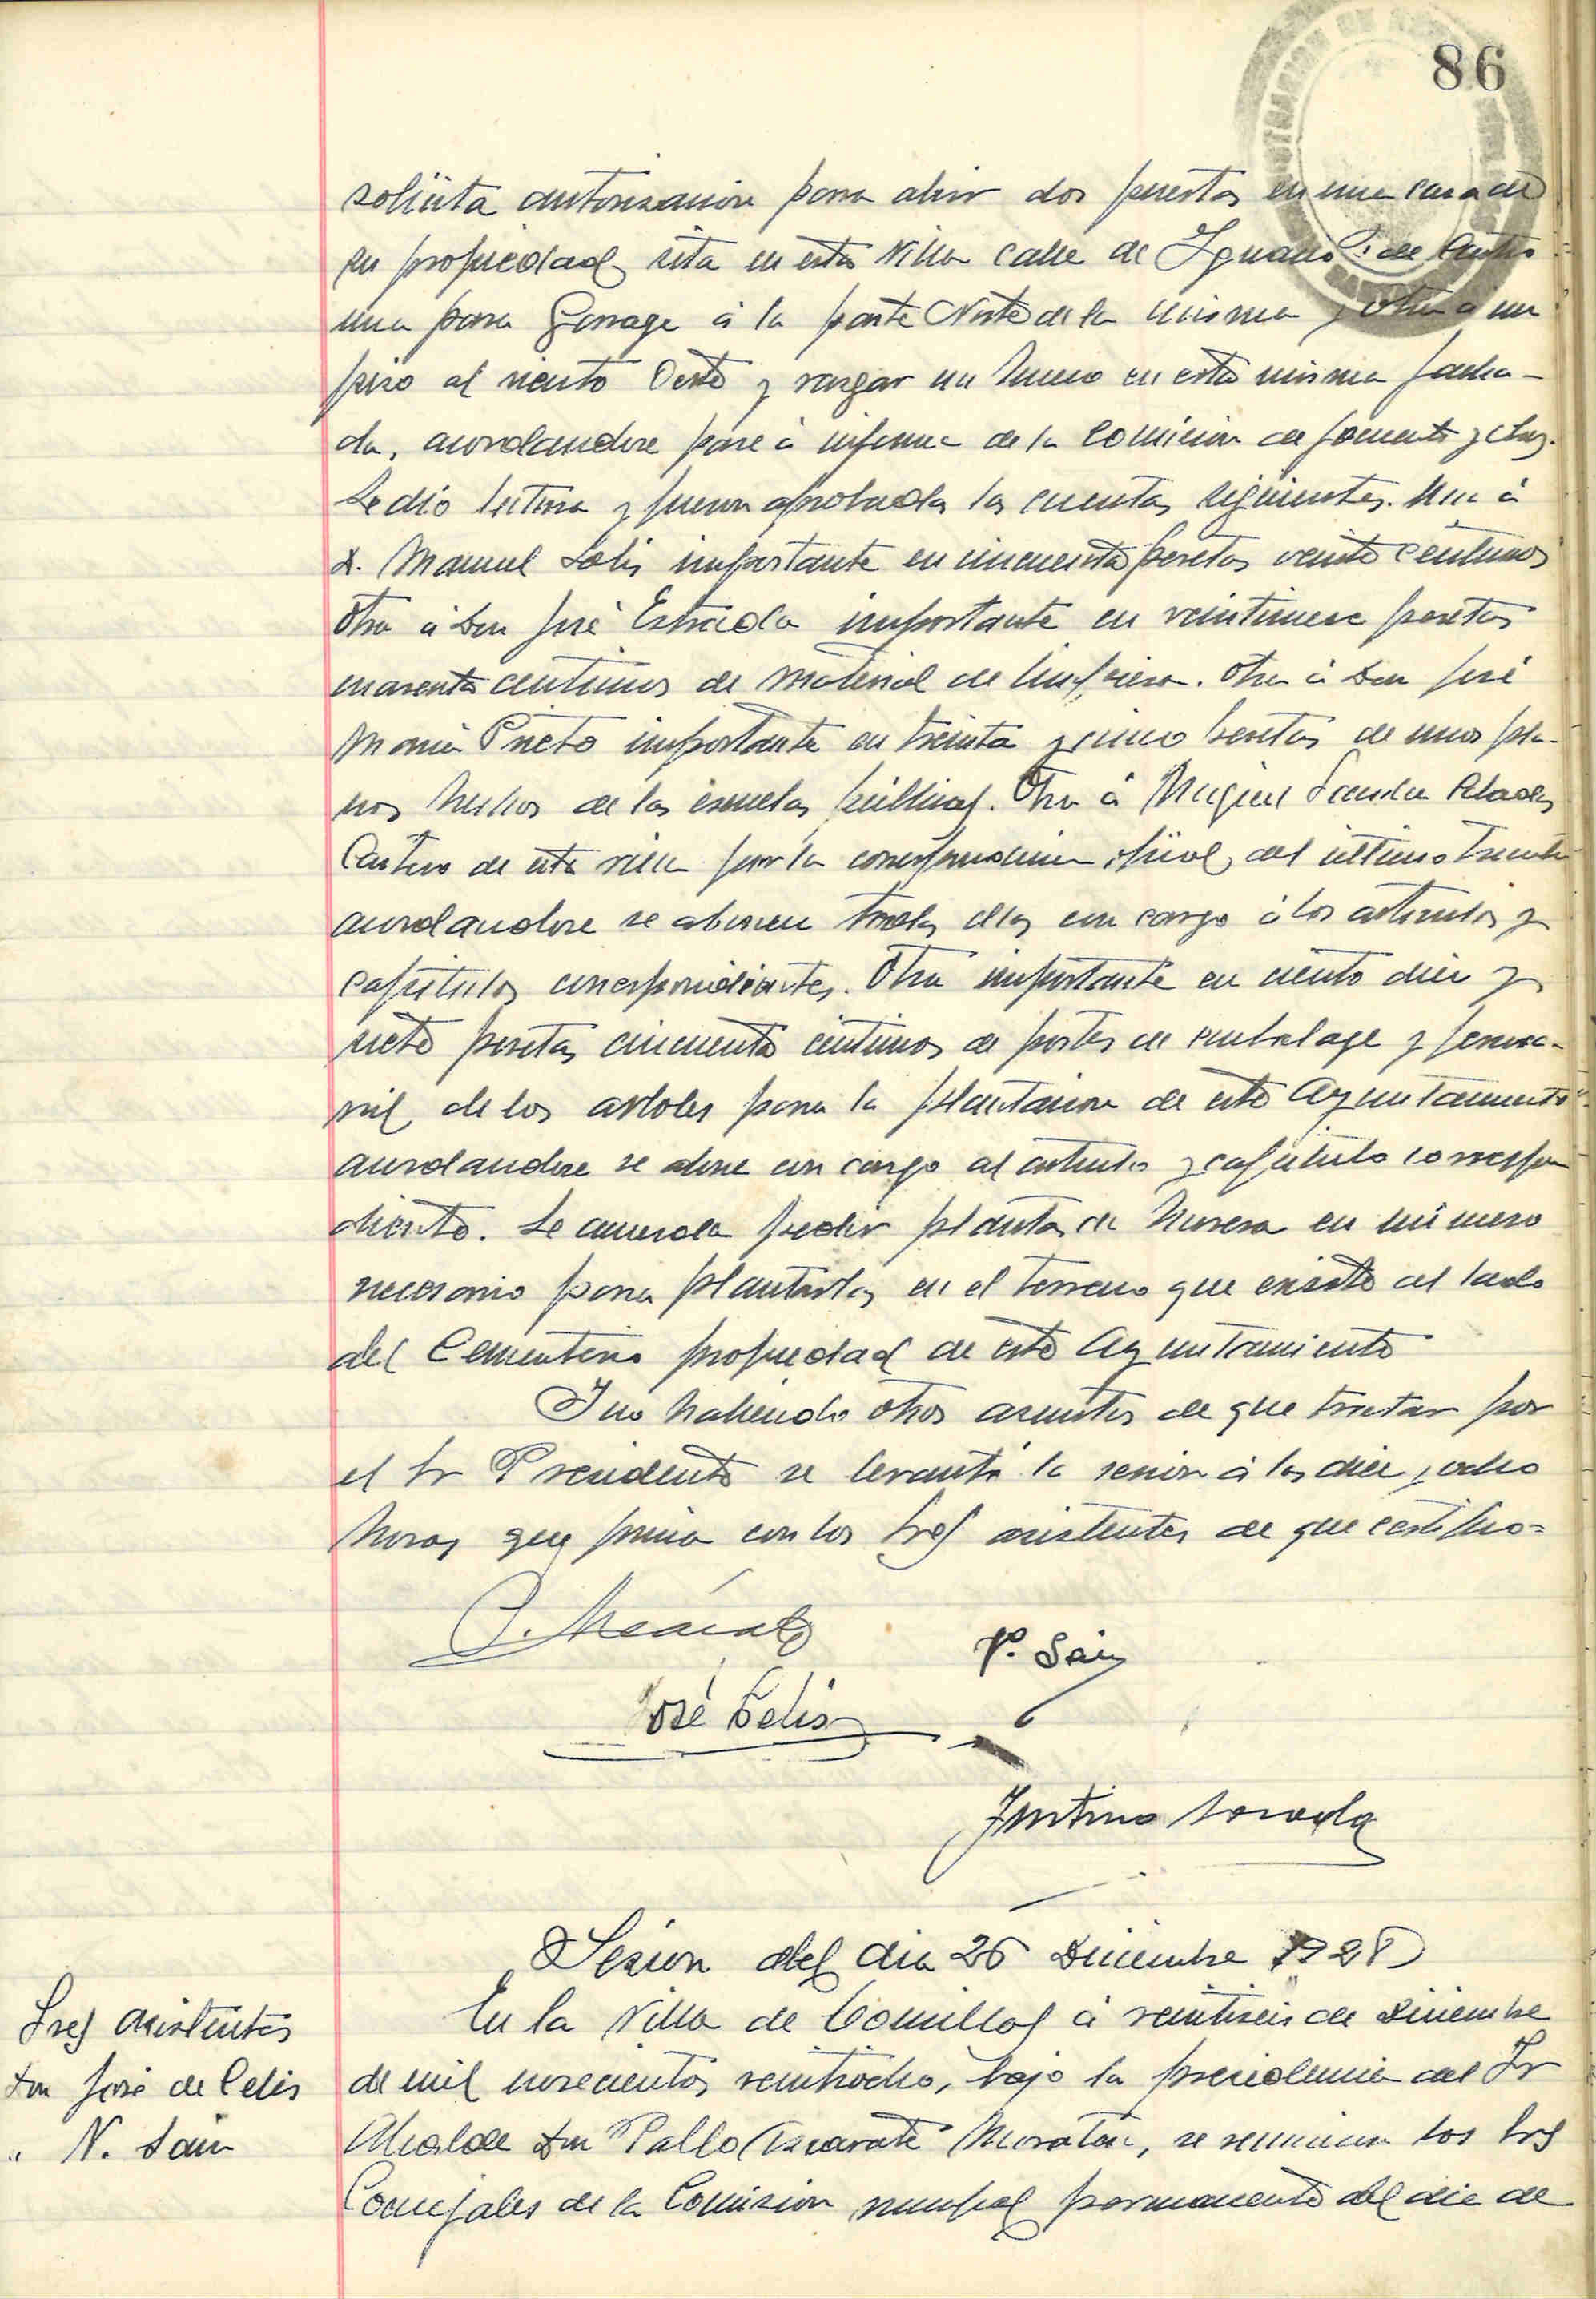 86
solicita autorizacion para abrir dos puertas en una casa de
su propiedad sita en esta Villa calle de Ygnacio F. de Castro
una para Garrage á la parte Norte de la misma y otra a un
piso al viento Oeste y rasgar un hueco en esta misma facha-
da, acordandose pase á informe de la Comision de fomento y
Se dió lectura y fueron aprobadas las cuentas siguientes. Una á
D. Manuel Solis importante en cincuenta pesetas veinte centimos
Otra á Don José Estrada importante en veintinueve pesetas
cuarenta centimos de material de limpieza. Otra á Don José
Maria Prieto importante en treinta y cinco pesetas de unos pla-
nos hechos de las escuelas públicas. Otra á Miguel
Cartero de esta villa por la correspondencia oficial del último
acordandose se abonen todas ellas con cargo á los articulos y
capitulos correspondientes. Otra importante en ciento diez y
siete pesetas cincuenta céntimos de portes de embalage y ferroca-
rril de los arboles para la plantacion de este Ayuntamiento
acordandose se abone con cargo al articulo y capitulo correspon
diente. Se acuerda pedir plantas de en número
necesario para plantarlas en el terreno que existe al lado
del Cementerio propiedad de este Ayuntamiento
Y no habiendo otros asuntos de que tratar por
el Sr Presidente se levantó la sesion á las diez y ocho
horas que firma con los Sres asistentes de que certifico=
José Celis
N. Sainz
Sesion del dia 26 Diciembre 1928
Sres asistentes
Don José de Celis
" N. Sainz
En la Villa de Comillas á veintiseis de Diciembre
de mil novecientos veintiocho, bajo la presidencia del Sr
Alcalde Don Pablo Azcarate Moratan, se reunieron los Sres
Concejales de la Comision municipal permanente del dia de